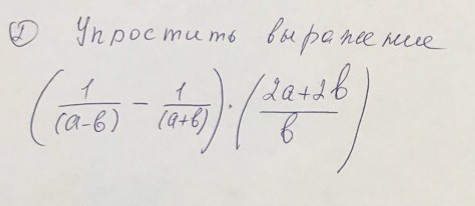 ① Упростить выражение
(1/(а-в) - 1/(а+в)) · (2а+2в/в)